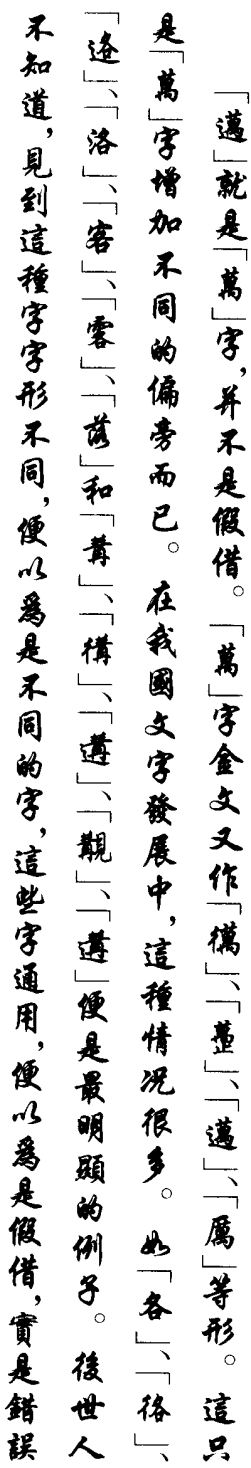 「邁」就是「萬」字，并不是假借。「萬」字金文又作「𢕪」、「蠆」、「邁」、「厲」等形。這只
是「萬」字增加不同的偏旁而已。在我國文字發展中，這種情况很多。如「各」、「佫」、
「逄」、「洛」、「客」、「零」、「落」和「冓」、「構」、「遘」、「覯」、「遘」便是最明顯的例子。後世人
不知道，見到這種字字形不同，便以爲是不同的字，這些字通用，便以爲是假借，實是錯誤